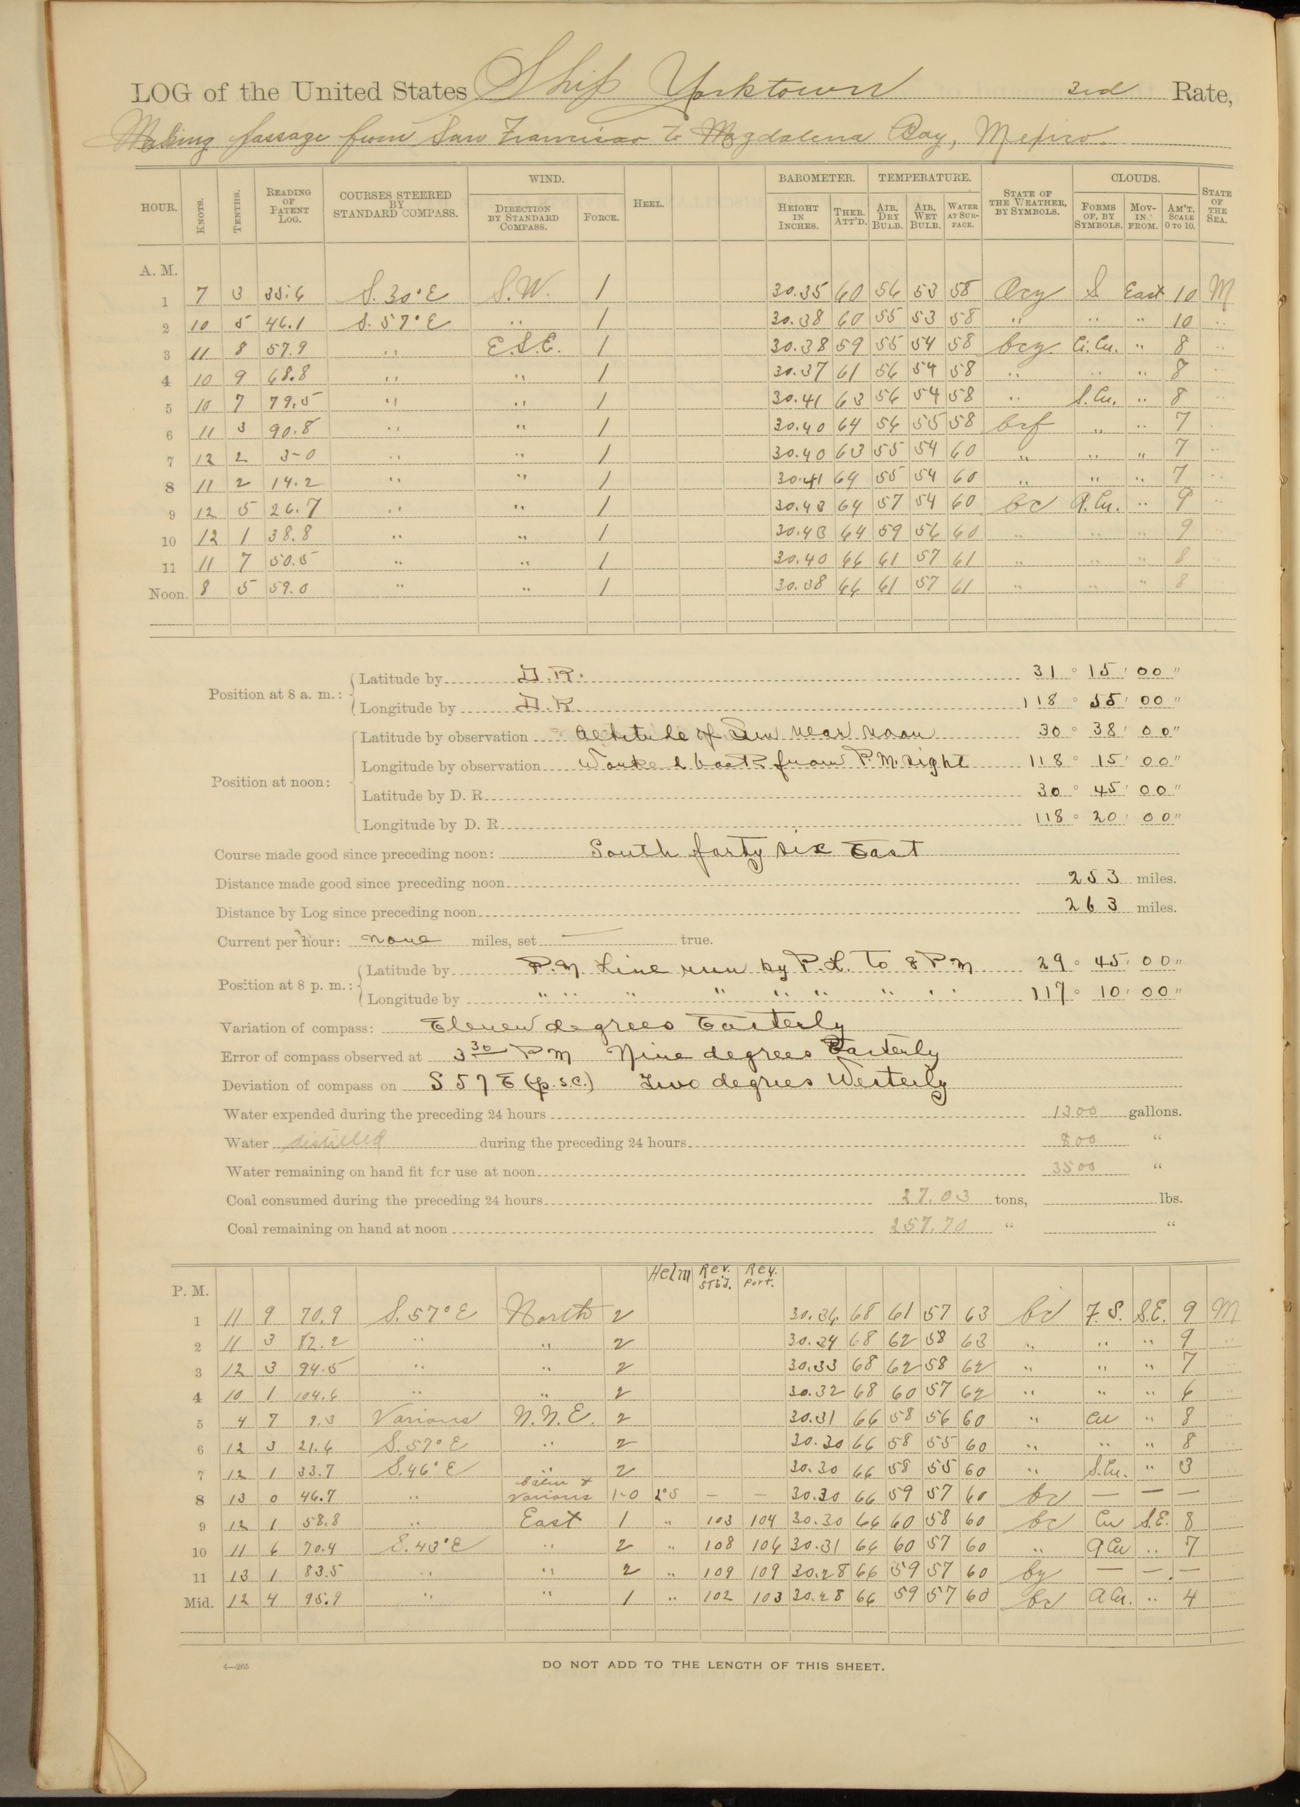 LOG of the United States Ship Yorktown 3rd Rate,
Making passage from San Francisco to Magdalena Bay, Mexico.
HOUR. KNOTS. TENTHS. READING OF PATENT LOG. COURSES STEERED BY STANDARD COMPASS. WIND. DIRECTION BY STANDARD COMPASS. FORCE. HEEL. BAROMETER. HEIGHT IN INCHES. THER. ATT'D. TEMPERATURE. AIR, DRY BULB. AIR, WET BULB. WATER AT SURFACE. STATE OF THE WEATHER, BY SYMBOLS. CLOUDS. FORMS OF, BY SYMBOLS. MOVING FROM. AM'T, SCALE 0 TO 10. STATE OF THE SEA.
A. M.
1 7 3 35.6 S. 30° E S.W. 1 30.35 60 56 53 58 ocy S East 10 M
2 10 5 46.1 S. 57° E " 1 30.38 60 55 53 58 " " " 10 "
3 11 8 57.9 " E.S.E. 1 30.38 59 55 54 58 bcy Ci.Cu. " 8 "
4 10 9 68.8 " " 1 30.37 61 56 54 58 " " " 8 "
5 10 7 79.5 " " 1 30.41 63 56 54 58 " S.Cu. " 8 "
6 11 3 90.8 " " 1 30.40 64 56 55 58 bcf " " 7 "
7 12 2 3-0 " " 1 30.40 63 55 54 60 " " " 7 "
8 11 2 14.2 " " 1 30.41 64 55 54 60 " " " 7 "
9 12 5 26.7 " " 1 30.43 64 57 54 60 bc A.Cu. " 9 "
10 12 1 38.8 " " 1 30.43 64 59 56 60 " " " 9 "
11 11 7 50.5 " " 1 30.40 66 61 57 61 " " " 8 "
Noon. 8 5 59.0 " " 1 30.38 66 61 57 61 " " " 8 "
Position at 8 a. m.: Latitude by D.R. 31° 15' 00"
Longitude by D.R. 118° 55' 00"
Position at noon: Latitude by observation Altitude of Sun near noon 30° 38' 00"
Longitude by observation Worked back from P.M. sight 118° 15' 00"
Latitude by D. R. 30° 45' 00"
Longitude by D. R. 118° 20' 00"
Course made good since preceding noon: South forty six East
Distance made good since preceding noon 253 miles.
Distance by Log since preceding noon 263 miles.
Current per hour: none miles, set — true.
Position at 8 p. m.: Latitude by P.M. Line run by P.L. to 8 PM 29° 45' 00"
Longitude by " " " " " " " " " 117° 10' 00"
Variation of compass: Eleven degrees Easterly
Error of compass observed at 3 30 PM Nine degrees Easterly
Deviation of compass on S 57 E (p.s.c.) Two degrees Westerly
Water expended during the preceding 24 hours 1300 gallons.
Water distilled during the preceding 24 hours 800 "
Water remaining on hand fit for use at noon 3500 "
Coal consumed during the preceding 24 hours 27.03 tons, lbs.
Coal remaining on hand at noon 257.70 " "
P. M. Helm Rev. Stb'd. Rev. Port.
1 11 9 70.9 S. 57° E North 2 30.34 68 61 57 63 bc F.S. S.E. 9 M
2 11 3 82.2 " " 2 30.34 68 62 58 63 " " " 9 "
3 12 3 94.5 " " 2 30.33 68 62 58 62 " " " 7 "
4 10 1 104.6 " " 2 30.32 68 60 57 62 " " " 6 "
5 4 7 9.3 Various N.N.E. 2 30.31 66 58 56 60 " Cu " 8 "
6 12 3 21.6 S. 57° E " 2 30.30 66 58 55 60 " " " 8 "
7 12 1 33.7 S. 46° E " 2 30.30 66 58 55 60 " S.Cu. " 3 "
8 13 0 46.7 " Calm & Various 1-0 2°S — — 30.30 66 59 57 60 bc — — — "
9 12 1 58.8 " East 1 " 103 104 30.30 66 60 58 60 bc Cu S.E. 8 "
10 11 6 70.4 S. 43° E " 2 " 108 106 30.31 66 60 57 60 " A Cu " 7 "
11 13 1 83.5 " " 2 " 109 109 30.28 66 59 57 60 by — — — "
Mid. 12 4 95.9 " " 1 " 102 103 30.28 66 59 57 60 bc A Cu. " 4 "
4—265
DO NOT ADD TO THE LENGTH OF THIS SHEET.